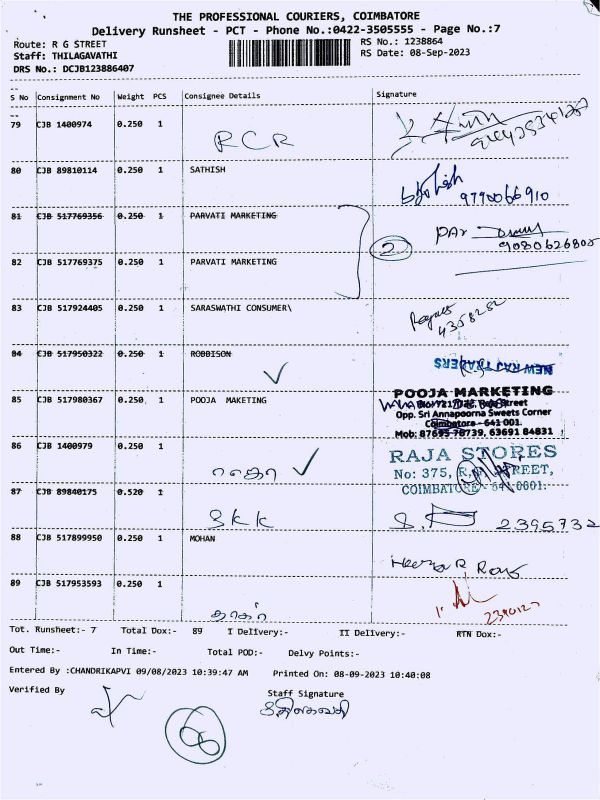 THE PROFESSIONAL COURIERS, COIMBATORE
Delivery Runsheet - PCT - Phone No.:0422-3505555 - Page No.:7
Route: R G STREET
RS No.: 1238864
Staff: THILAGAVATHI
RS Date: 08-Sep-2023
DRS No.: DCJB123886407
S No Consignment No Weight PCS Consignee Details Signature
79 CJB 1400974 0.250 1
RCR
80 CJB 89810114 0.250 1 SATHISH
9790066910
81 CJB 517769356 0.250 1 PARVATI MARKETING
2
9080626805
82 CJB 517769375 0.250 1 PARVATI MARKETING
83 CJB 517924405 0.250 1 SARASWATHI CONSUMER\
4358282
84 CJB 517950322 0.250 1 ROBBISON
NEW RAJ TRADERS
85 CJB 517980367 0.250 1 POOJA MAKETING
POOJA MARKETING
Street
Opp. Sri Annapoorna Sweets Corner
Coimbatore - 641 001.
Mob: 87695 78739, 63691 84831
86 CJB 1400979 0.250 1
ராஜா
RAJA STORES
No: 375, R.G. STREET,
COIMBATORE - 641 0001.
87 CJB 89840175 0.520 1
SKK
2395732
88 CJB 517899950 0.250 1 MOHAN
89 CJB 517953593 0.250 1
Tot. Runsheet:- 7 Total Dox:- 89 I Delivery:- II Delivery:- RTN Dox:-
Out Time:- In Time:- Total POD:- Delvy Points:-
Entered By :CHANDRIKAPVI 09/08/2023 10:39:47 AM Printed On: 08-09-2023 10:40:08
Verified By Staff Signature
66